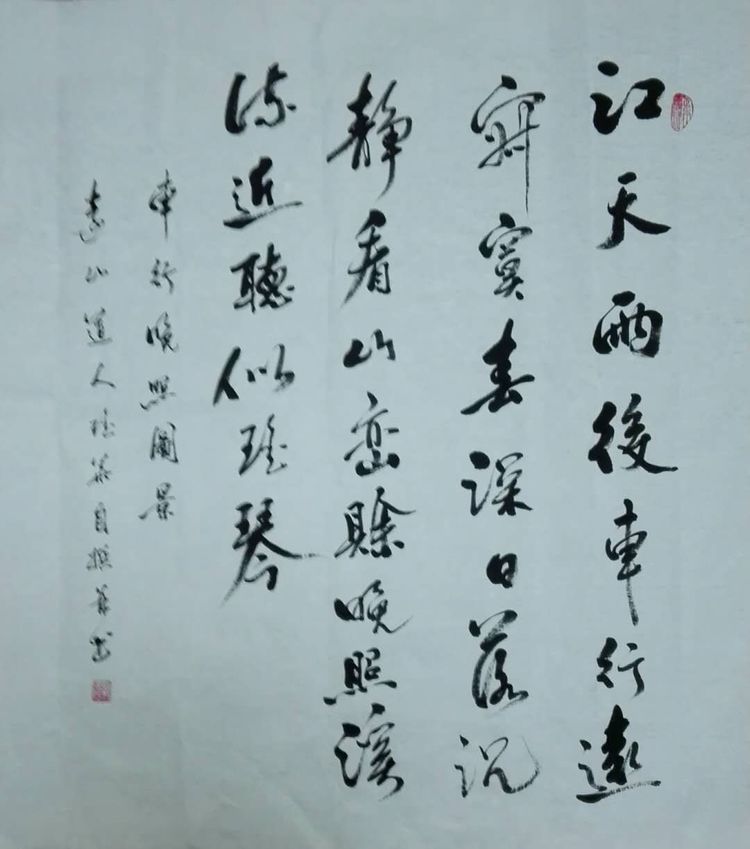 江天雨後車行遠
寂寞春深日落沉
静看山巒賒晚照溪
流近聽似瑤琴
車行晚照圖景
山道人 自撰並書